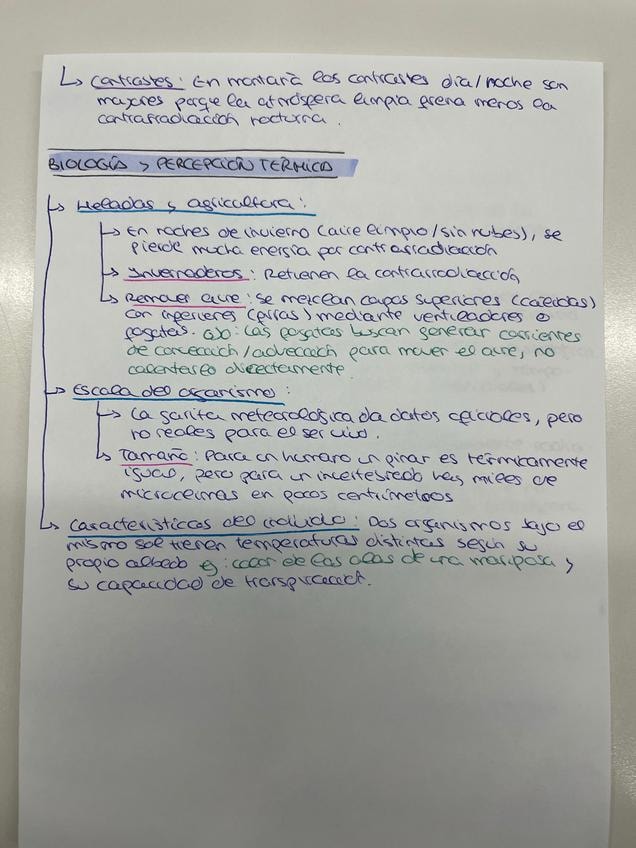 ↳ Contrastes: En montaña los contrastes día/noche son
mayores porque la atmósfera limpia frena menos la
contrarradiación nocturna.
BIOLOGÍA Y PERCEPCIÓN TÉRMICA
↳ Heladas y agricultura:
↳ En noches de invierno (aire limpio/sin nubes), se
pierde mucha energía por contrarradiación
↳ Invernaderos: Retienen la contrarradiación
↳ Remover aire: Se mezclan capas superiores (calientes)
con inferiores (frías) mediante ventiladores o
fogatas. ojo: Las fogatas buscan generar corrientes
de convección/advección para mover el aire, no
calentarlo directamente.
↳ Escala del organismo:
↳ La garita meteorológica da datos oficiales, pero
no reales para el ser vivo.
↳ Tamaño: Para un humano un pinar es térmicamente
igual, pero para un invertebrado hay miles de
microclimas en pocos centímetros
↳ Características del individuo: Dos organismos bajo el
mismo sol tienen temperaturas distintas según su
propio albedo ej: color de las alas de una mariposa y
su capacidad de transpiración.